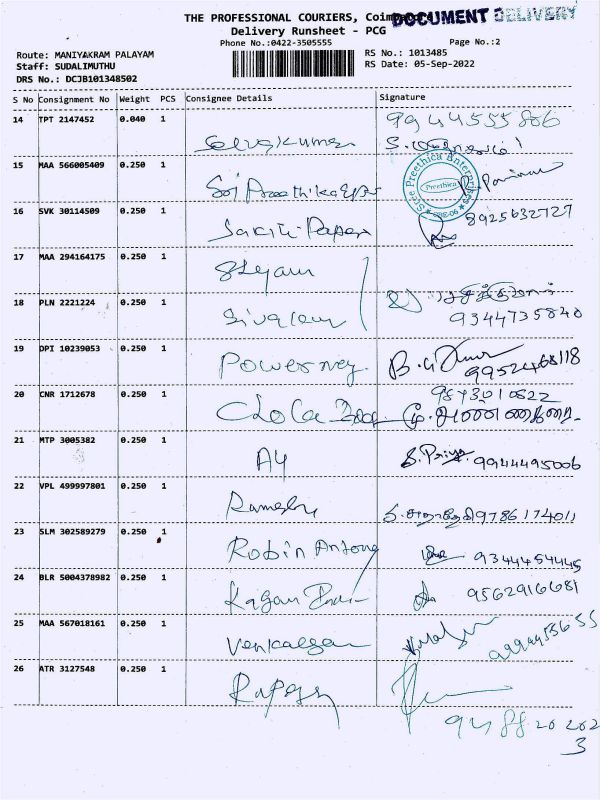 THE PROFESSIONAL COURIERS, Coimbatore
DOCUMENT DELIVERY
Delivery Runsheet - PCG
Phone No.:0422-3505555
Page No.:2
Route: MANIYAKRAM PALAYAM
RS No.: 1013485
Staff: SUDALIMUTHU
RS Date: 05-Sep-2022
DRS No.: DCJB101348502
S No Consignment No Weight PCS Consignee Details Signature
14 TPT 2147452 0.040 1 Selvakumar 9944555886
15 MAA 566005409 0.250 1 Sri Preethika
Sree Preethica Enterprises
Preethica
16 SVK 30114509 0.250 1 Sakthi Paper 8925632727
17 MAA 294164175 0.250 1 Shyam
18 PLN 2221224 0.250 1 Sivaram 9344735840
19 DPI 10239053 0.250 1 9952468118
20 CNR 1712678 0.250 1 Chola 9873010822
21 MTP 3005382 0.250 1 A4 S. Priya 9944495006
22 VPL 499997801 0.250 1 Ramesh 9786174011
23 SLM 302589279 0.250 1 Robin Antony 9344454445
24 BLR 5004378982 0.250 1 9562916681
25 MAA 567018161 0.250 1 Venkatesan
26 ATR 3127548 0.250 1